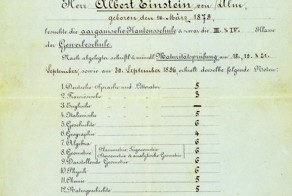 Herr Albert Einstein von Ulm,
geboren den 14. März 1879,
besuchte die aargauische Kantonsschule & zwar die III. & IV. Klasse
der Gewerbeschule.
Nach abgelegter schriftl. & mündl. Maturitätsprüfung am 18., 19. & 21.
September, sowie am 30. September 1896, erhielt derselbe folgende Noten:
1. Deutsche Sprache und Litteratur 5
2. Französische
3. Englische —
4. Italienische 5
5. Geschichte 6
6. Geographie 4
7. Algebra 6
8. Geometrie 6
9. Darstellende Geometrie 6
10. Physik 6
11. Chemie 5
12. Naturgeschichte 5